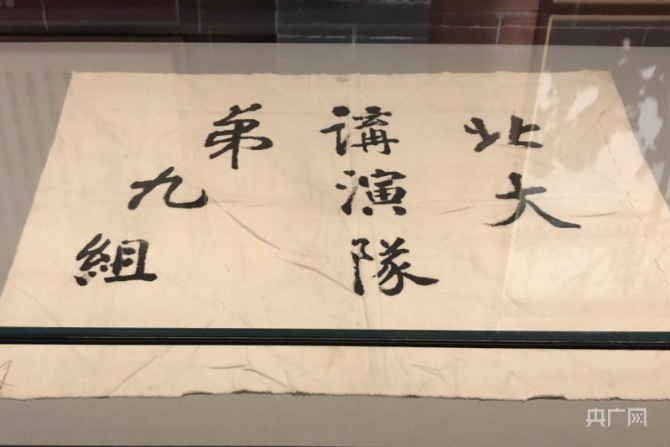 北大
講演隊
弟九組
央广网